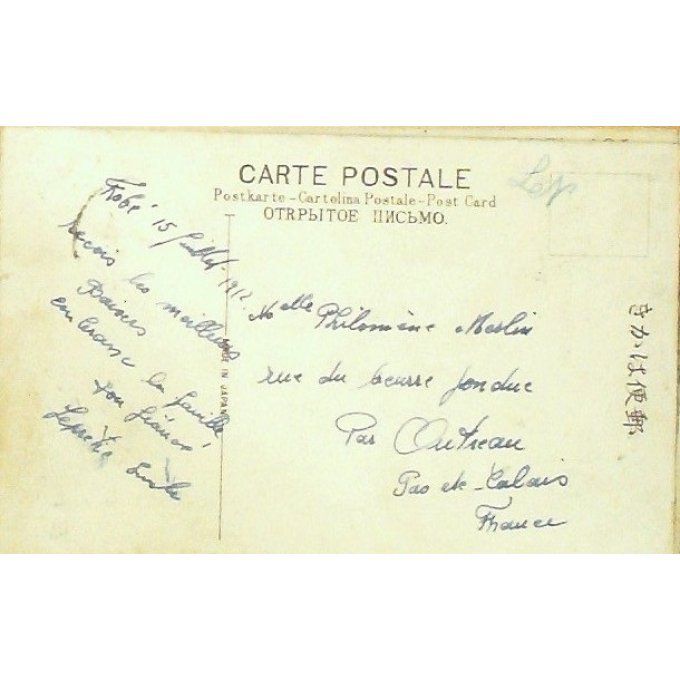 CARTE POSTALE
Postkarte - Cartolina Postale - Post Card
ОТКРЫТОЕ ПИСЬМО.
Kobé 15 Juillet 1912
reçois les meilleurs
Baisers
embrasse la famille
ton fiancé
MADE IN JAPAN
Melle Philomène Merlin
rue du beurre fondue
Par Outreau
Pas de-Calais
France
きかは便郵